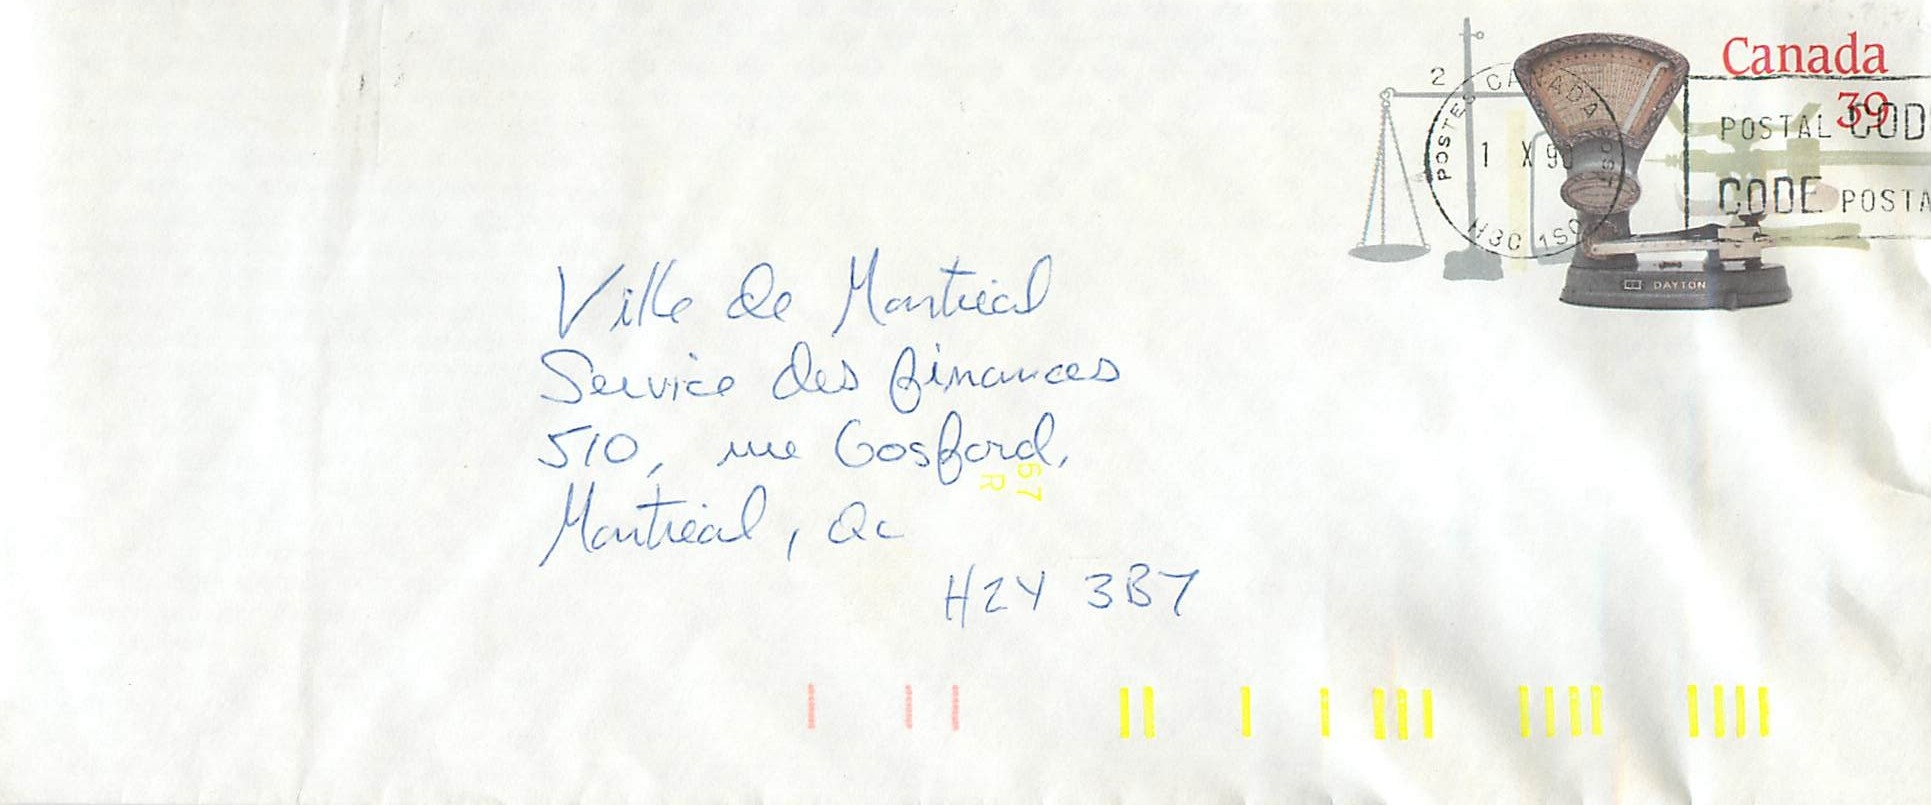 Canada
39
2
POSTES CANADA
1 X 90
H3C 1S0
POSTAL CODE
CODE POSTA
DAYTON
Ville de Montréal
Service des finances
510, rue Gosford,
67
R
Montréal, Qc
H2Y 3B7